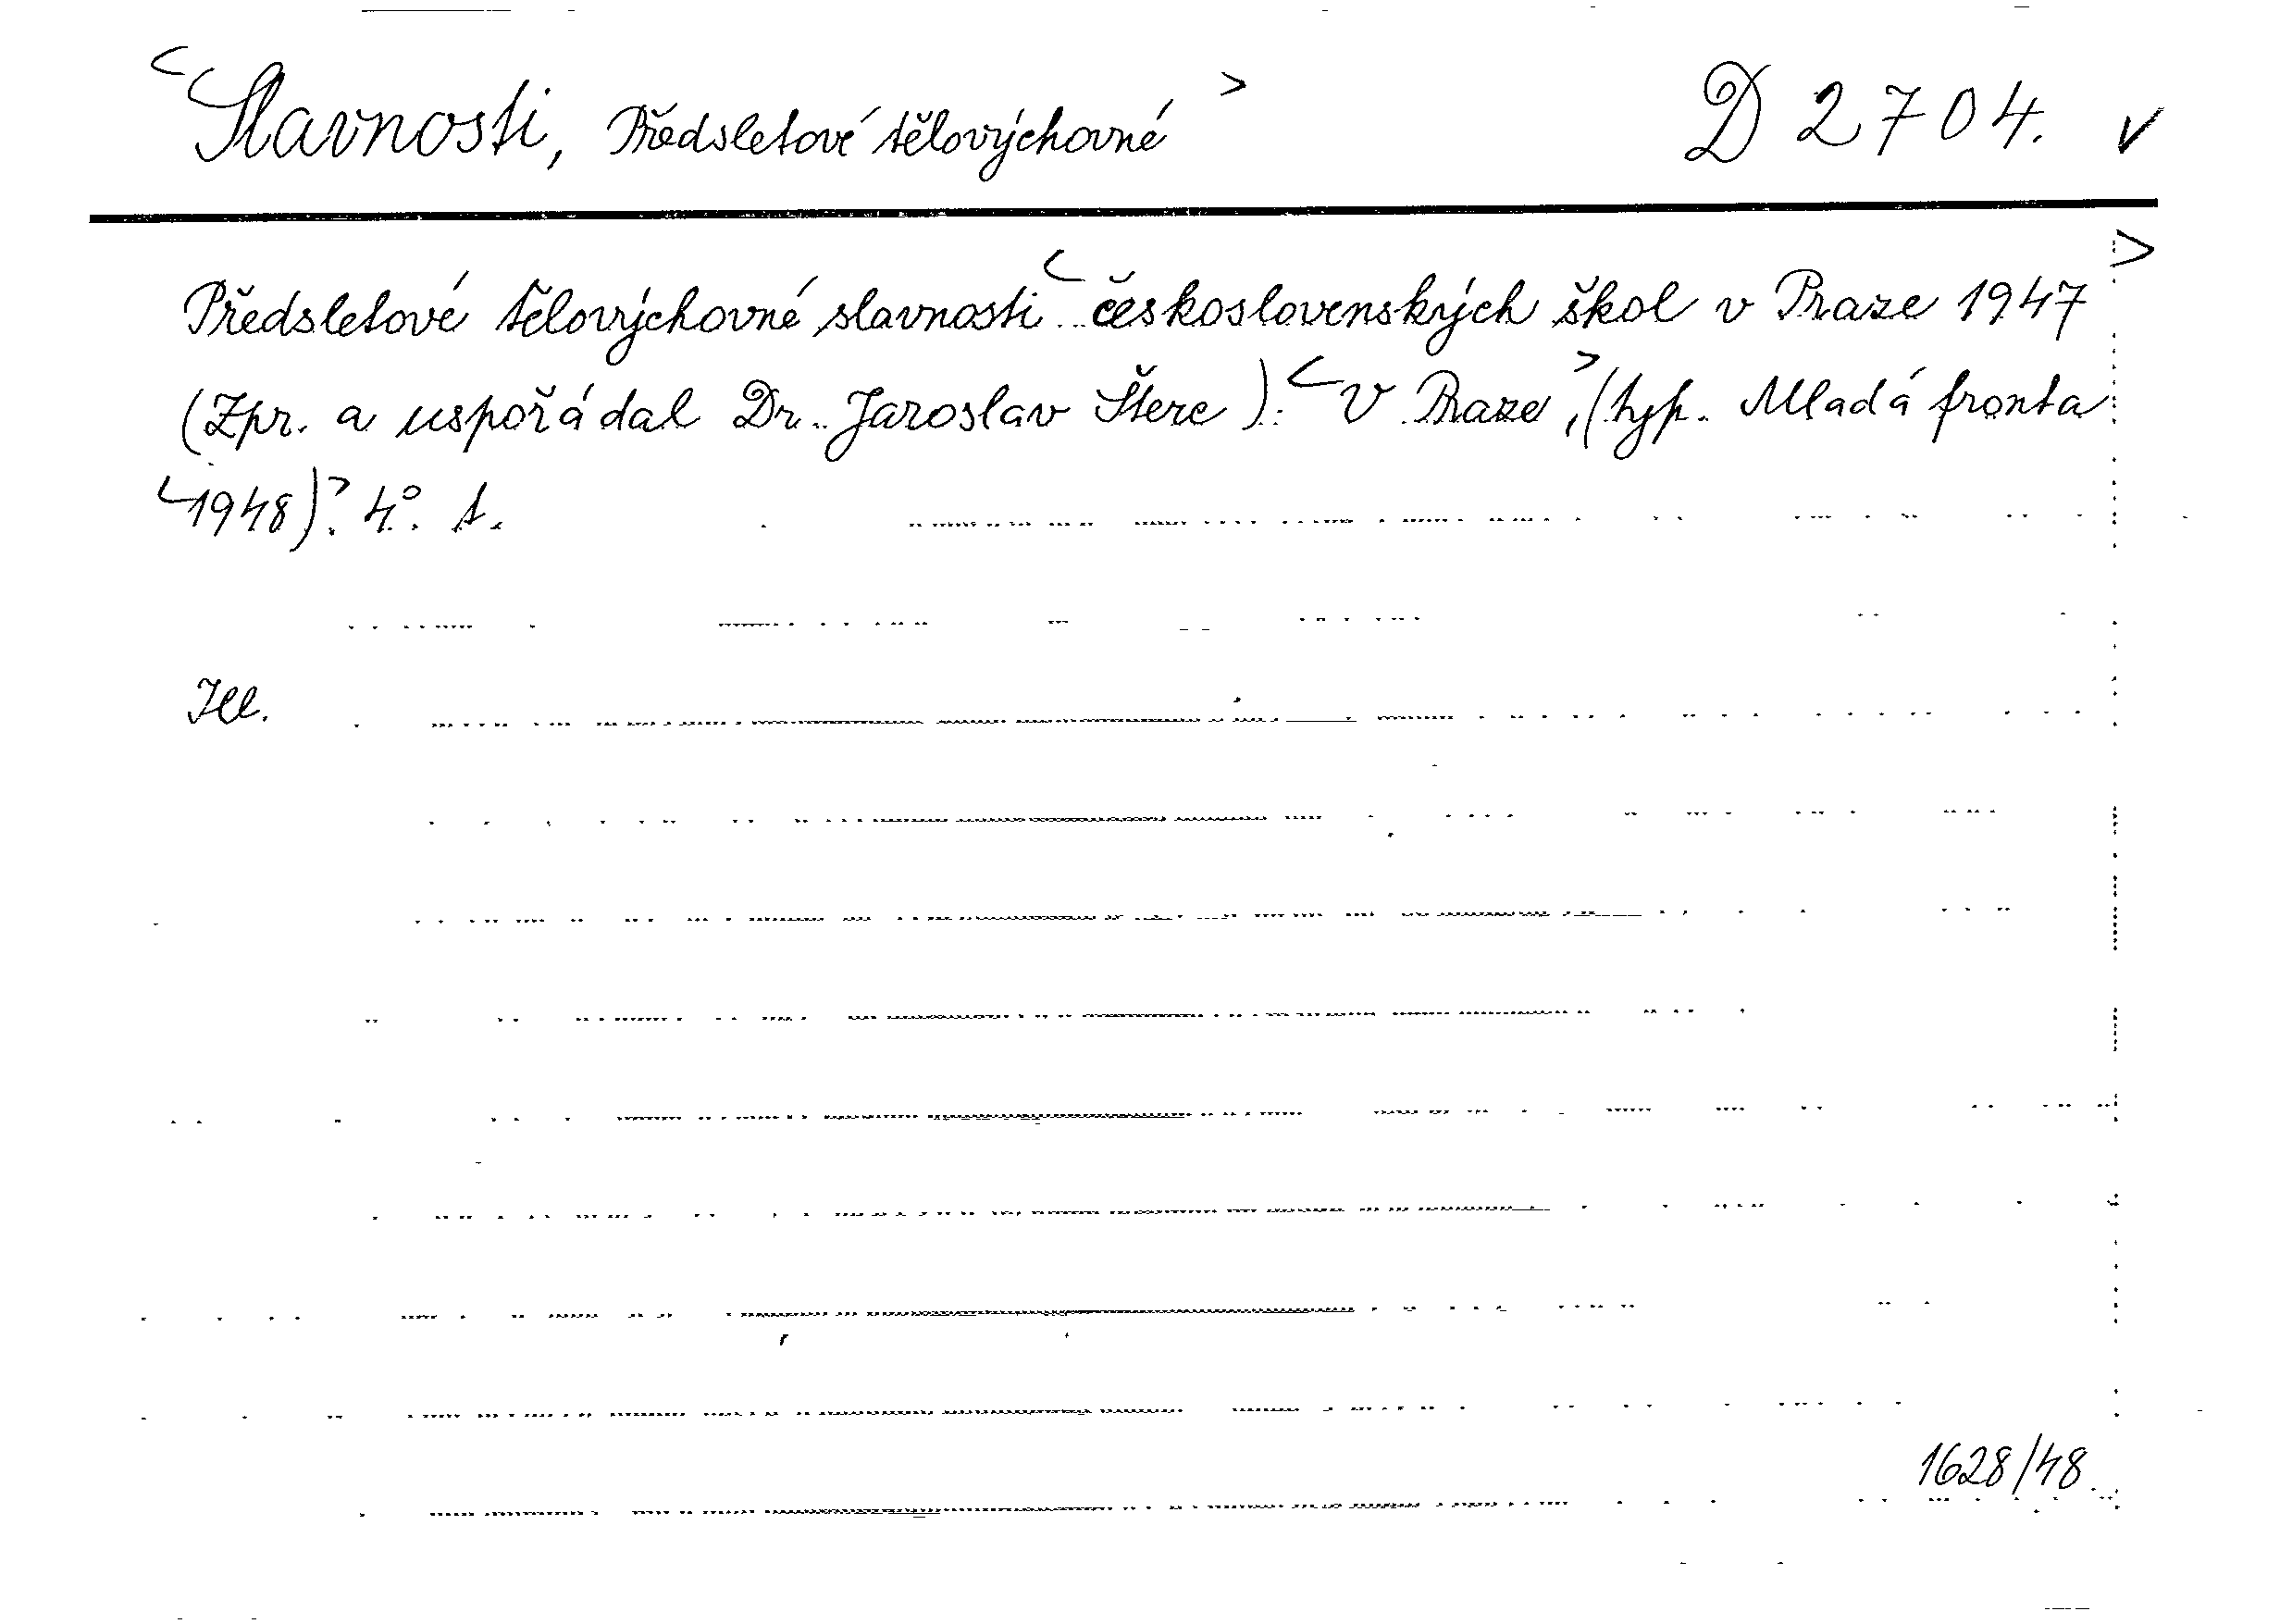 <Slavnosti, Předsletové tělovýchovné> D 2704. v
Předsletové tělovýchovné slavnosti <československých škol v Praze 1947>
(Zpr. a uspořádal Dr. Jaroslav Šterc). <V Praze>, (typ. Mladá fronta
<1948)>. 4°. s.
Ill.
1628/48.